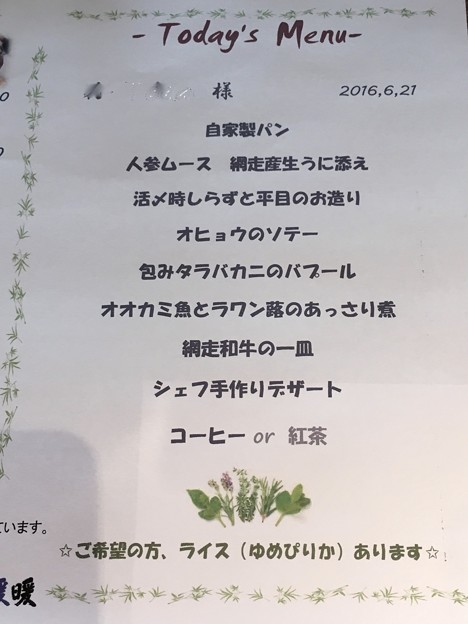 - Today's Menu-
様 2016,6,21
自家製パン
人参ムース 網走産生うに添え
活〆時しらずと平目のお造り
オヒョウのソテー
包みタラバカニのバプール
オオカミ魚とラワン蕗のあっさり煮
網走和牛の一皿
シェフ手作りデザート
コーヒー or 紅茶
ています。
☆ご希望の方、ライス（ゆめぴりか）あります☆
暖